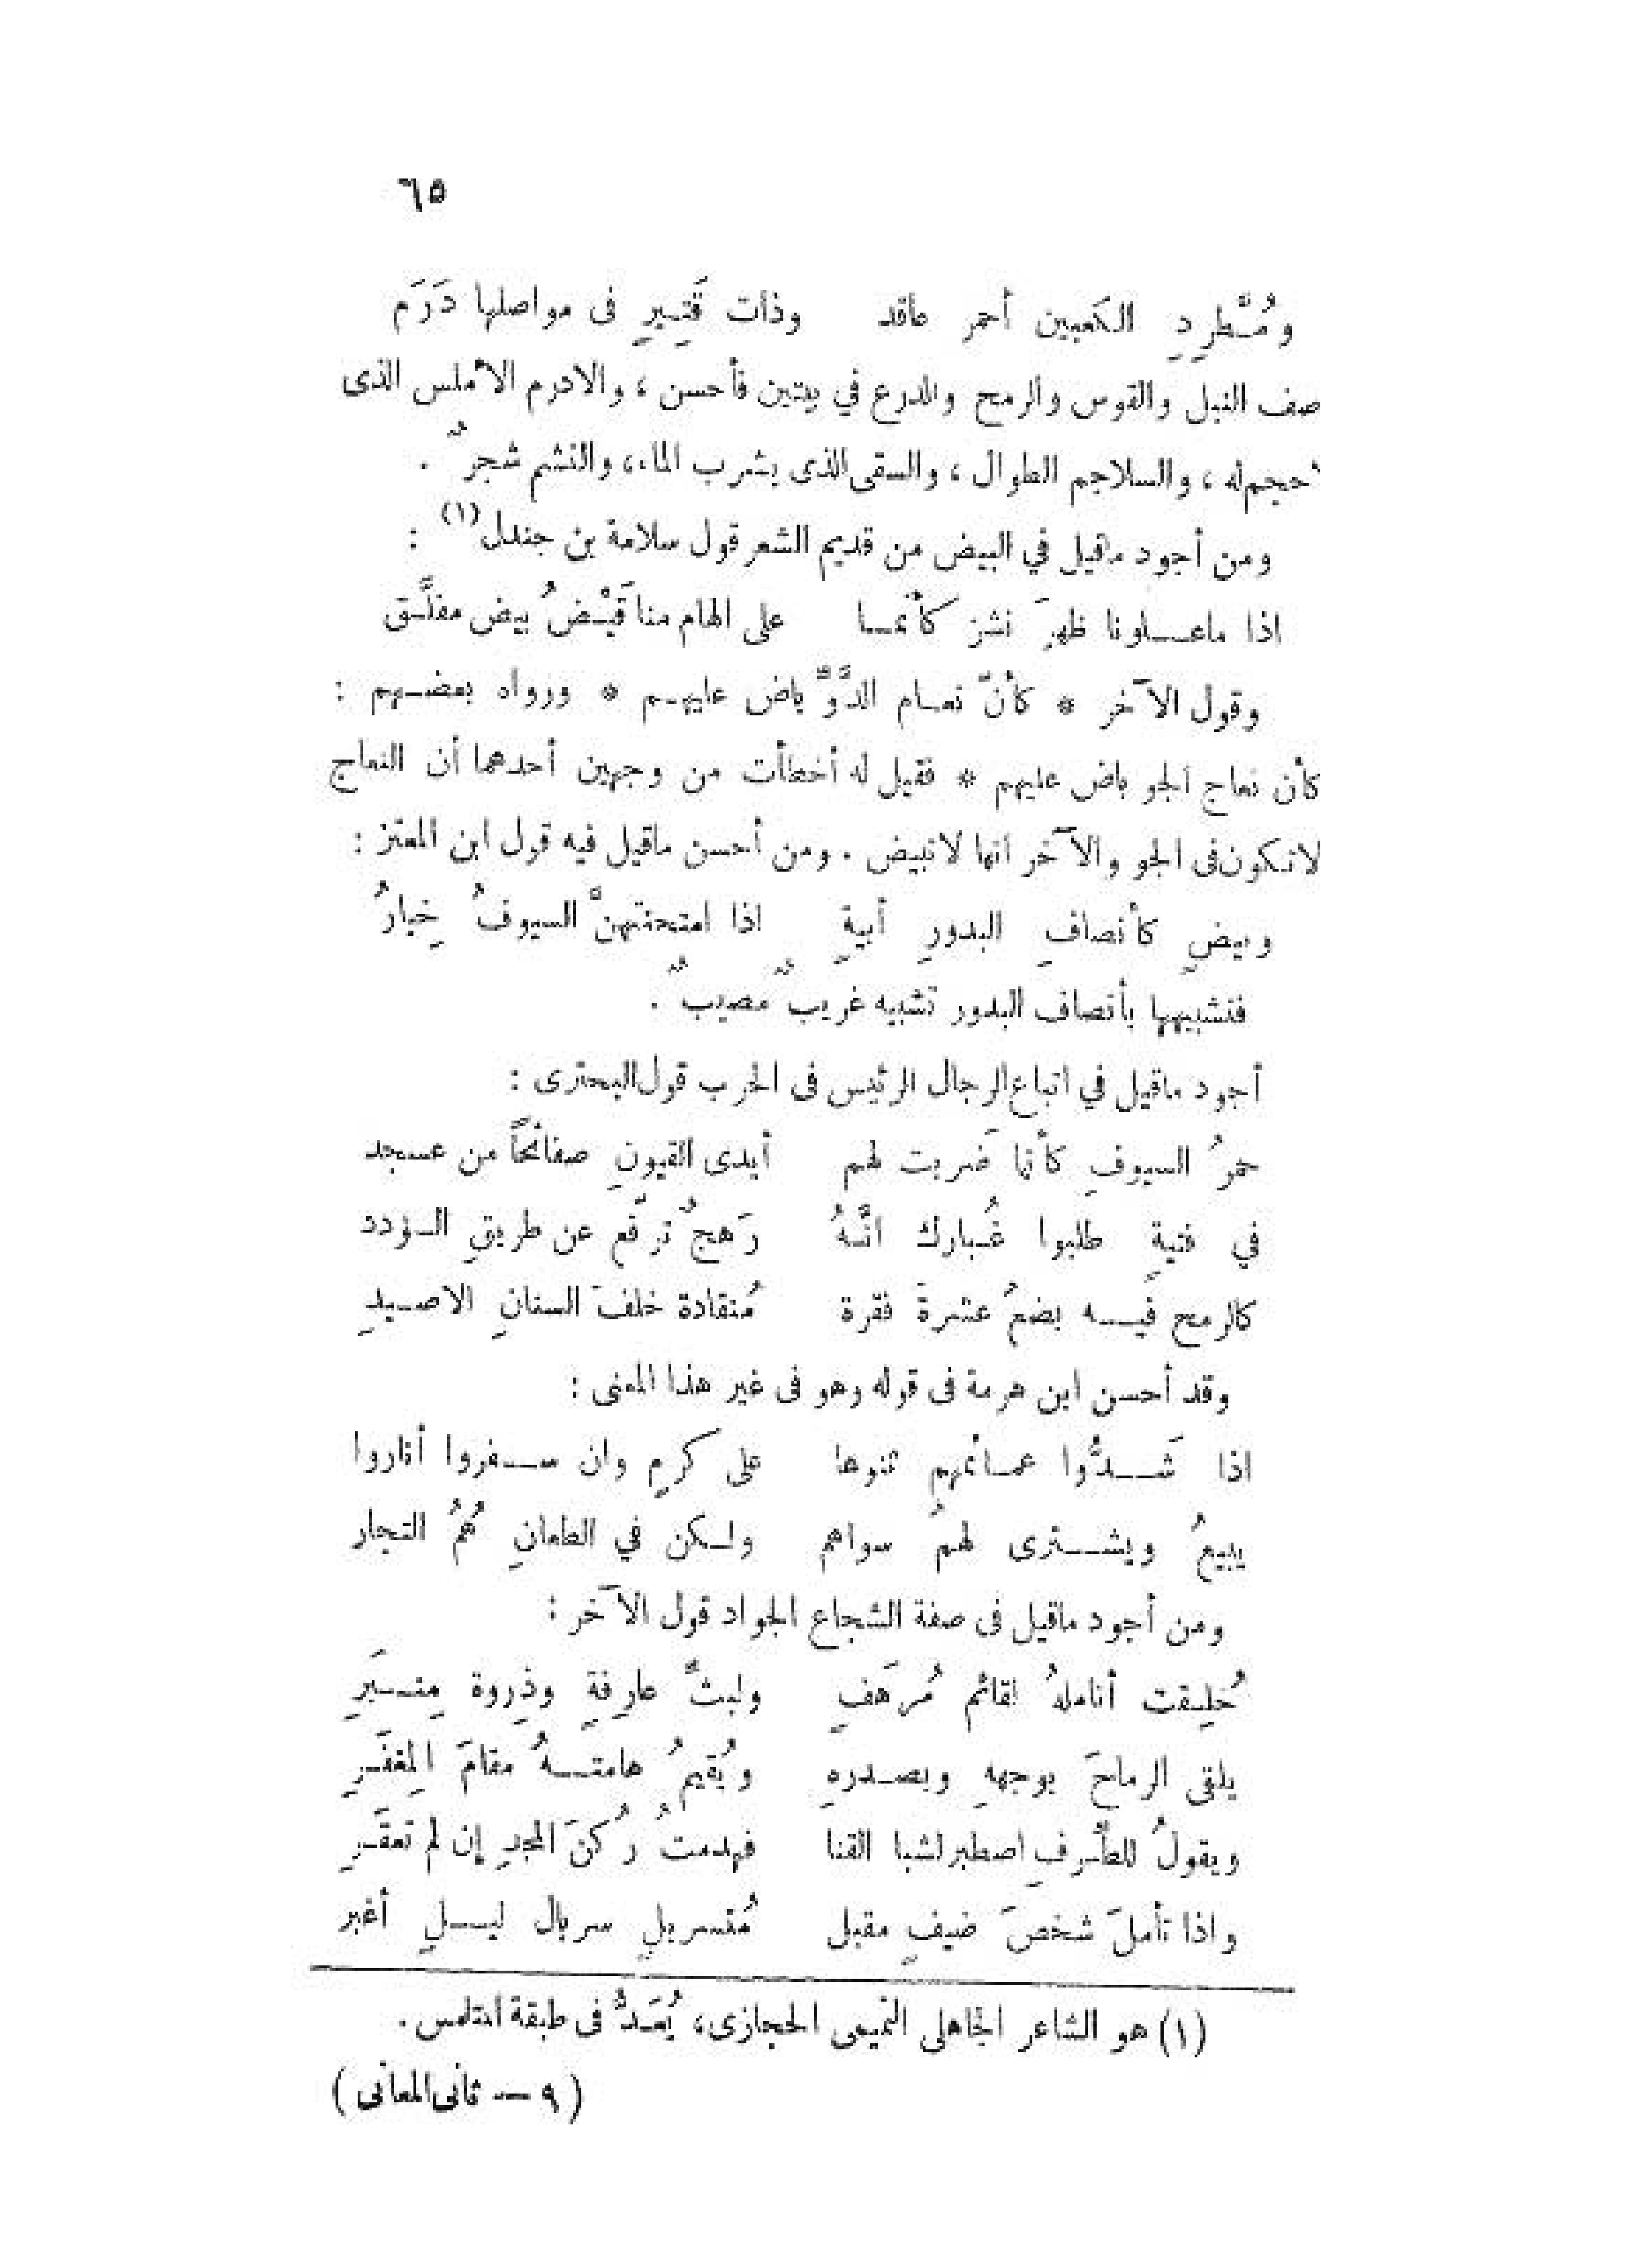 ٦٥
ومُطَّرِدِ الكَعبين أحمر عاقد وذات قَتِيرٍ فى مواصلها دَرَم
صف النبل والقوس والرمح والدرع في بيتين فأحسن ، والادرم الأملس الذى
حجم له ، والسلاجم الطوال ، والسقى الذى يشرب الماء ، والنشم شجرٌ .
ومن أجود ماقيل في البيض من قديم الشعر قول سلامة بن جندل (١) :
اذا ماعلونا ظهرَ نشز كأنما على الهام منا قَيْضُ بيض مفلَّق
وقول الآخر * كأنّ نعام الدَّوِّ باض عليهم * ورواه بعضهم :
كأن نعاج الجو باض عليهم * فقيل له أخطأت من وجهين أحدهما أن النعاج
لاتكون فى الجو والآخر أنها لاتبيض . ومن أحسن ماقيل فيه قول ابن المعتز :
وبيضٍ كأنصافِ البدورِ أبيةٍ اذا امتحنتهنَّ السيوفُ خِيارُ
فتشبيهها بأنصاف البدور تشبيه غريبٌ مصيبٌ .
أجود ماقيل في اتباع الرجال الرئيس فى الحرب قول البحترى :
حمرُ السيوفِ كأنما ضَربت لهم أيدى القيونِ صفائحاً من عسجد
في فتيةٍ طلبوا غُبارك انَّهُ رَهجٌ ترفّع عن طريقِ السؤدد
كالرمح فيه بضعُ عشرةَ فقرة مُنقادة خلفَ السنانِ الاصيدِ
وقد أحسن ابن هرمة فى قوله وهو فى غير هذا المعنى :
اذا شَدُّوا عمائمهم ثنوها على كرمٍ وان سفروا أناروا
يبيعُ ويشترى لهمُ سواهم ولكن في الطعانِ هُمُ التجار
ومن أجود ماقيل فى صفة الشجاع الجواد قول الآخر :
خُلِقت أناملهُ لقائم مُرهَفٍ ولبثِّ عارِفةٍ وذِروة مِنبَرِ
يلقى الرماحَ بوجههِ وبصدرهِ ويُقيمُ هامتهُ مقامَ المِغفَرِ
ويقولُ للطِّرفِ اصطبر لشبا القنا فهدمتُ رُكنَ المجدِ إن لم تعقَرِ
واذا تأملَ شخصَ ضيفٍ مقبل مُتسربلٍ سربال ليلٍ أغبر
(١) هو الشاعر الجاهلى التميمى الحجازى، يُعَدُّ فى طبقة المتلمس .
( ٩ — ثانى المعانى )